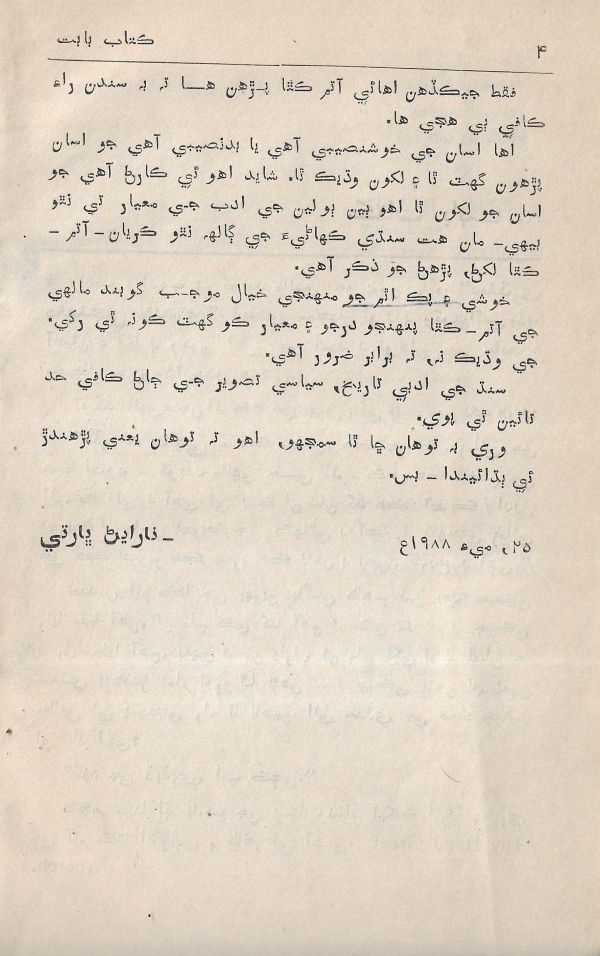 ۴
ڪتاب بابت
فقط جيڪڏهن اهائي آتم ڪٿا پڙهن هسا تہ بہ سندن راءِ
ڪافي ٿي هجي ها.
اها اسان جي خوشنصيبي آهي يا بدنصيبي آهي جو اسان
پڙهون گهٽ ٿا ۽ لکون وڌيڪ ٿا. شايد اهو ئي ڪارڻ آهي جو
اسان جو لکون ٿا اهو ٻين ٻولين جي ادب جي معيار تي نٿو
بيهي- مان هت سنڌي ڪهاڻيءَ جي ڳالهہ نٿو ڪريان-آتم-
ڪٿا لکڻ، پڙهڻ جو ذڪر آهي.
خوشي ۽ پڪ اٿم جو منهنجي خيال موجب گوبند مالهي
جي آتم-ڪٿا پنهنجو درجو ۽ معيار ڪو گهٽ ڪونہ ٿي رکي.
جي وڌيڪ نہ، تہ برابر ضرور آهي.
سنڌ جي ادبي تاريخ، سياسي تصوير جي ڄاڻ ڪافي حد
تائين ٿي پوي.
وري بہ توهان ڇا ٿا سمجهو، اهو تہ توهان يعني پڙهندڙ
ئي ٻڌائيندا - بس.
۲۵، ميءَ ۱۹۸۸ع
- نارايڻ ڀارتي